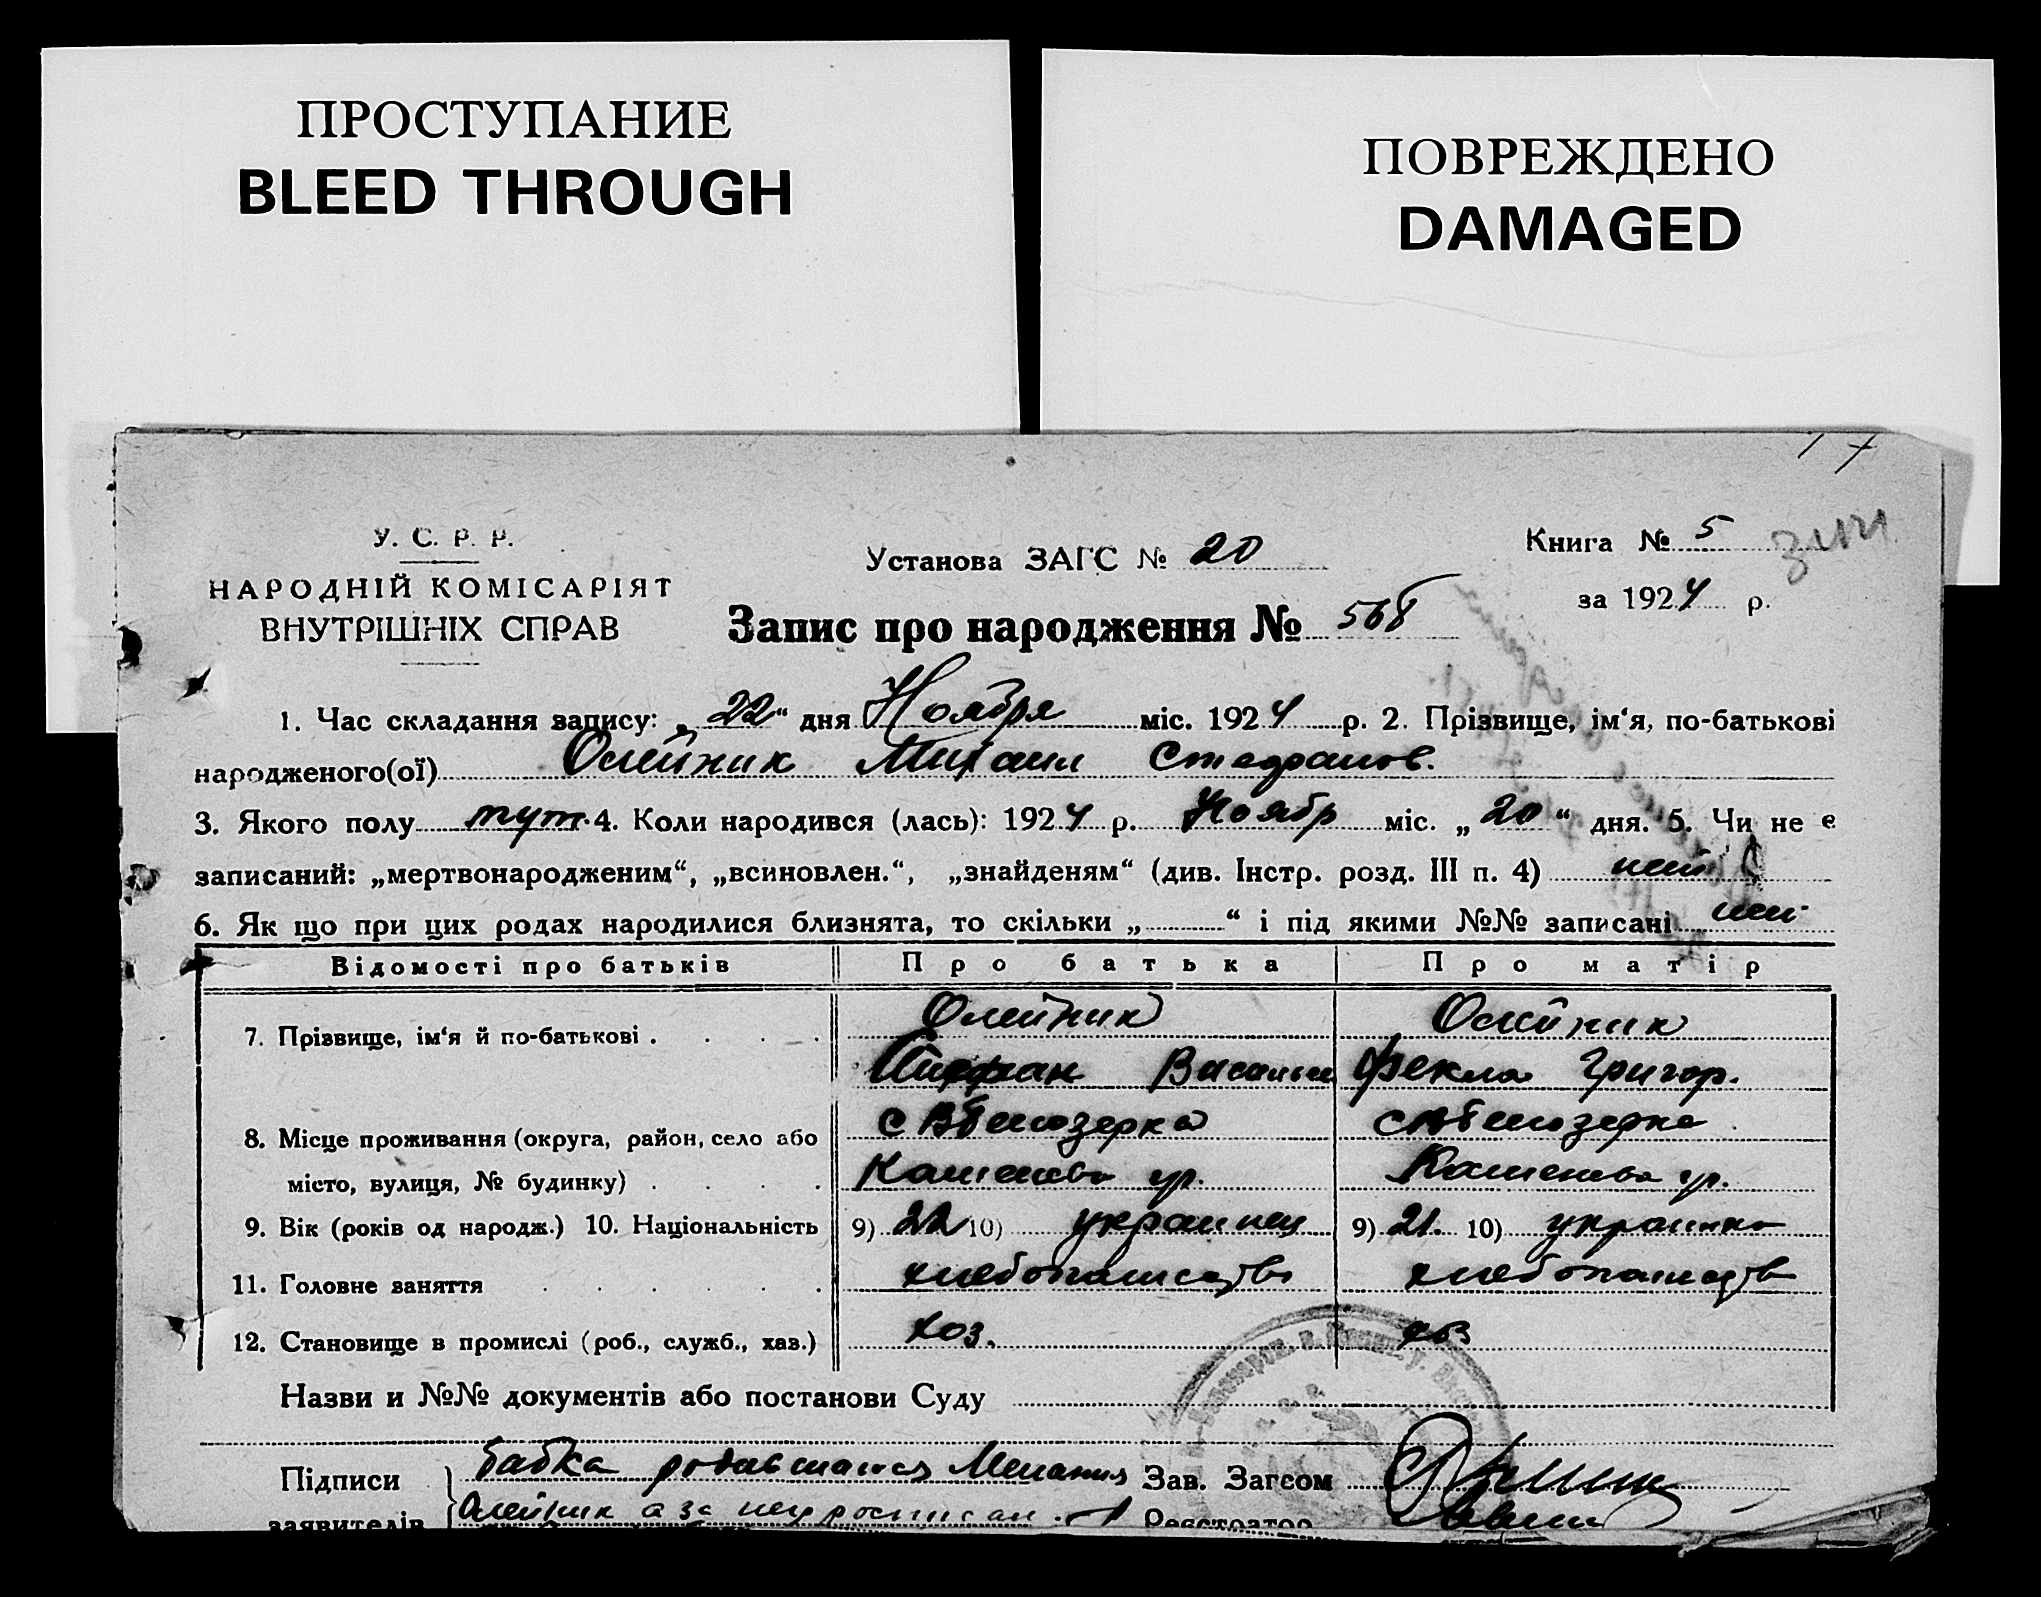 ПРОСТУПАНИЕ
BLEED THROUGH
ПОВРЕЖДЕНО
DAMAGED
17
У. С. Р. Р.
НАРОДНІЙ КОМІСАРІЯТ
ВНУТРІШНІХ СПРАВ
Установа ЗАГС № 20
Книга № 5
за 1924 р.
Запис про народження № 568
1. Час складання запису: „22“ дня Ноября міс. 1924 р. 2. Прізвище, ім‘я, по-батькові
народженого(ої) Олейник Михаил Стефанов.
3. Якого полу муж. 4. Коли народився (лась): 1924 р. Ноябр міс. „20“ дня. 5. Чи не є
записаний: „мертвонародженим“, „всиновлен.“, „знайденям“ (див. Інстр. розд. III п. 4) нет
6. Як що при цих родах народилися близнята, то скільки „ “ і під якими №№ записані нет
Відомості про батьків Про батька Про матір
7. Прізвище, ім‘я й по-батькові Олейник Олейник
Василье Фекла Григор.
8. Місце проживання (округа, район, село або
місто, вулиця, № будинку)
9. Вік (років од народж.) 10. Національність 9) 22 10) украинец 9) 21. 10) украинка
11. Головне заняття хлебопашество хлебопашеств
12. Становище в промислі (роб., служб., хаз.) хоз. хоз
Назви и №№ документів або постанови Суду
Підписи бабка родившагося Мелания Зав. Загсом
заявителів Олейник а за неу росписал Реєстратор